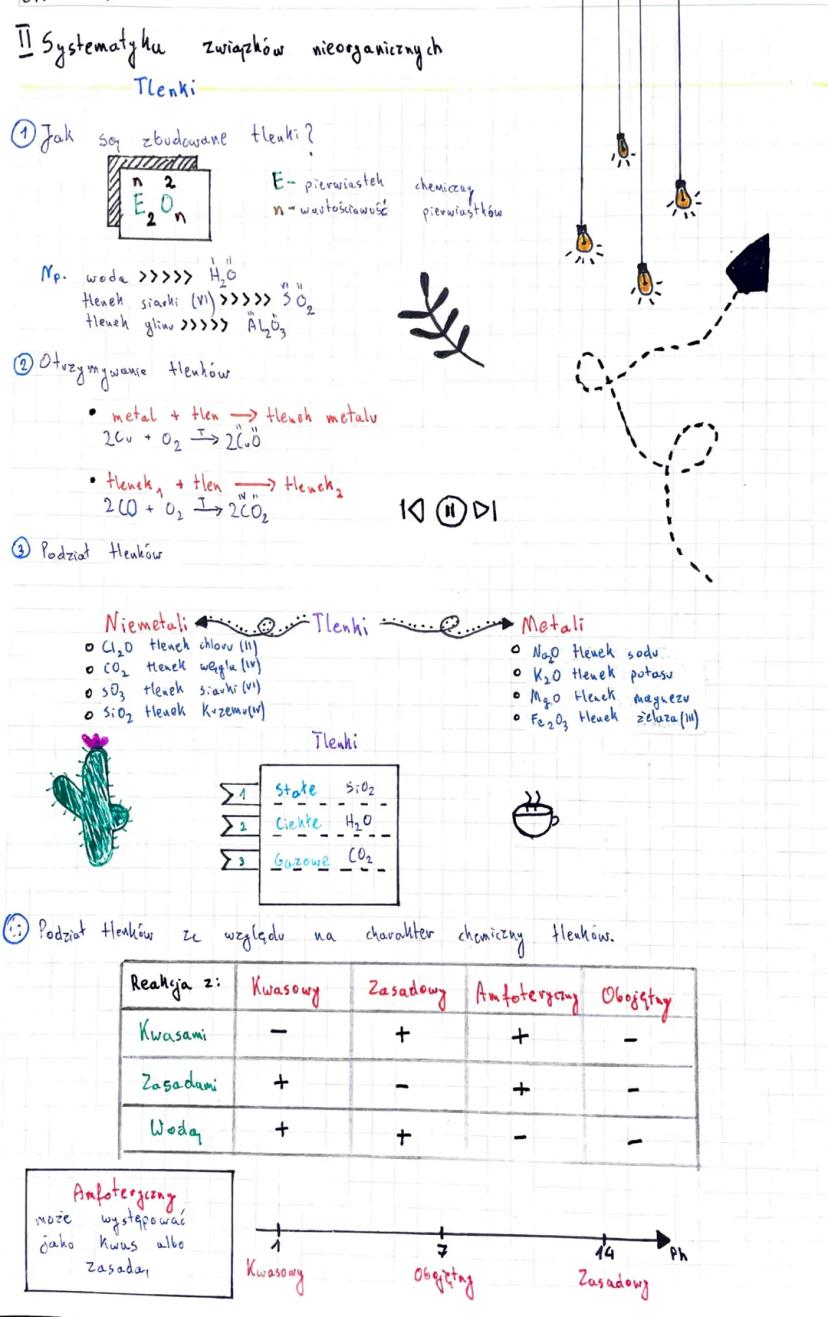 II Systematyka związków nieorganicznych
Tlenki
1 Jak są zbudowane tlenki?
n 2
E₂Oₙ
E - pierwiastek chemiczny
n - wartościowość pierwiastków
Np. woda >>>>> H₂O
I II
tlenek siarki (VI) >>>>> SO₂
VI II
tlenek glinu >>>>> Al₂O₃
III II
2 Otrzymywanie tlenków
• metal + tlen → tlenek metalu
2Cu + O₂ T→ 2CuO
II II
• tlenek₁ + tlen → tlenek₂
2CO + O₂ T→ 2CO₂
IV II
3 Podział tlenków
Niemetali Tlenki Metali
Cl₂O tlenek chloru (II)
CO₂ tlenek węgla (IV)
SO₃ tlenek siarki (VI)
SiO₂ tlenek krzemu (IV)
Na₂O tlenek sodu
K₂O tlenek potasu
MgO tlenek magnezu
Fe₂O₃ tlenek żelaza (III)
Tlenki
1 Stałe SiO₂
2 Ciekłe H₂O
3 Gazowe CO₂
Podział tlenków ze względu na charakter chemiczny tlenków.
Reakcja z: Kwasowy Zasadowy Amfoteryczny Obojętny
Kwasami - + + -
Zasadami + - + -
Wodą + + - -
Amfoteryczny
może występować
jako kwas albo
zasada,
1 7 14 Ph
Kwasowy Obojętny Zasadowy